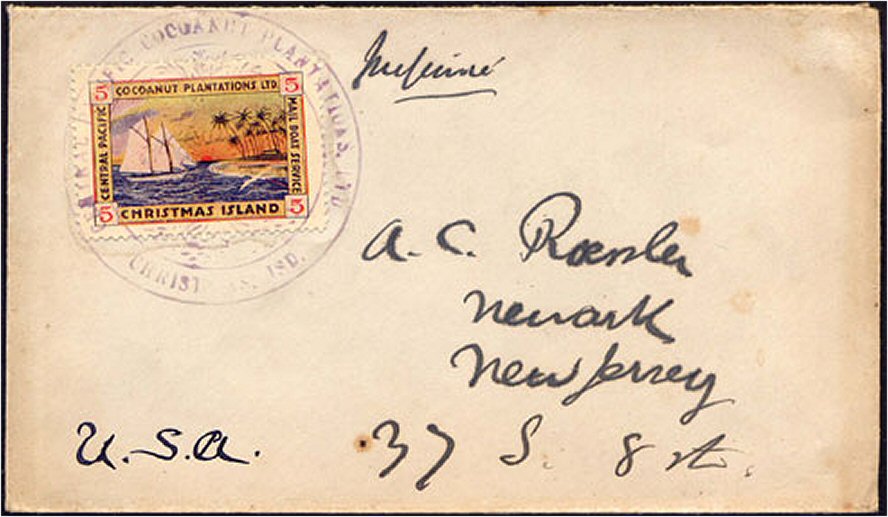 COCOANUT PLANTATIONS, LTD.
CHRISTMAS ISD.
5 COCOANUT PLANTATIONS LTD. 5
CENTRAL PACIFIC
MAIL BOAT SERVICE
5 CHRISTMAS ISLAND 5
A. C. Roessler
Newark
New Jersey
37 S. 8 st.
U.S.A.